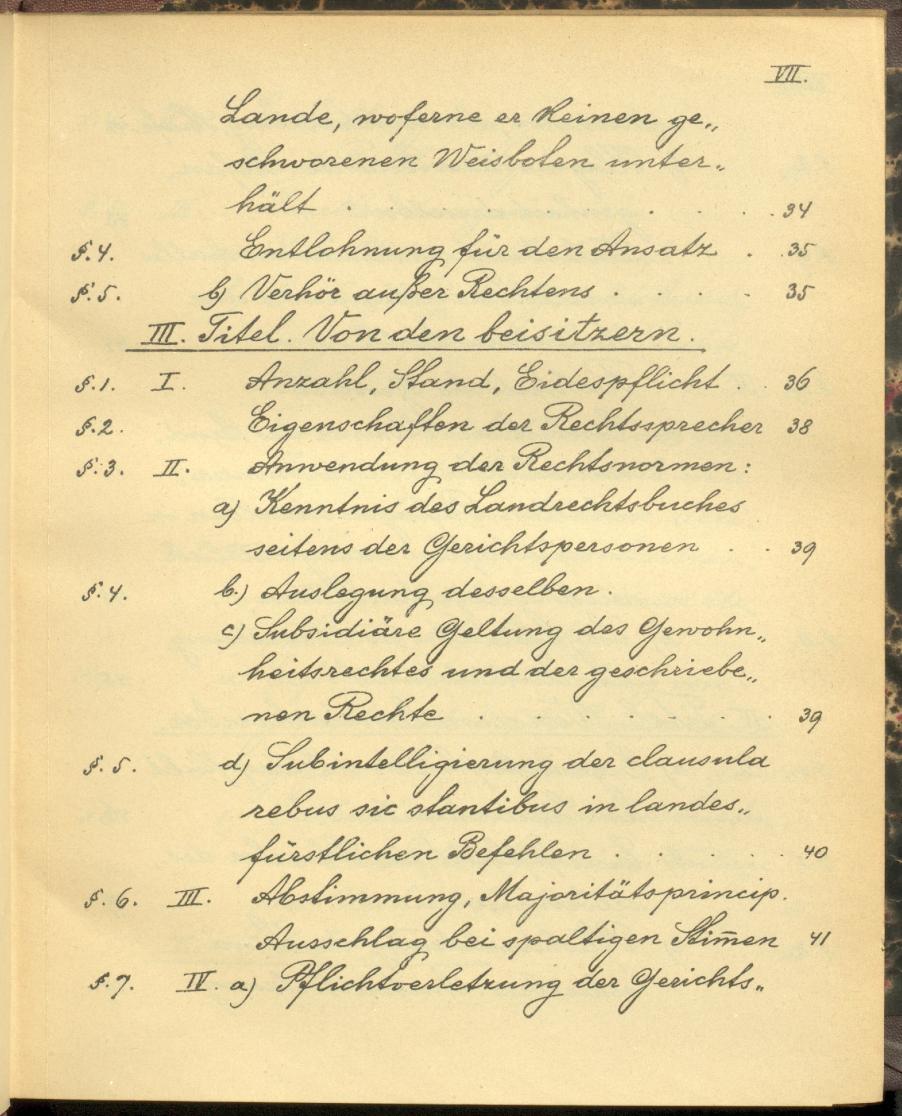 VII.
Lande, woferne er keinen ge„
schworenen Weisboten unter„
hält . . . . . . . 34
§.4. Entlohnung für den Ansatz . . 35
§.5. b) Verhör außer Rechtens . . . . 35
III. Titel. Von den beisitzern.
§.1. I. Anzahl, Stand, Eidespflicht . . 36
§.2. Eigenschaften der Rechtssprecher 38
§.3. II. Anwendung der Rechtsnormen:
a) Kenntnis des Landrechtsbuches
seitens der Gerichtspersonen . . 39
§.4. b.) Auslegung desselben.
c) Subsidiäre Geltung des Gewohn„
heitsrechtes und der geschriebe„
nen Rechte . . . . . . . 39
§.5. d) Subintelligierung der clausula
rebus sic stantibus in landes„
fürstlichen Befehlen . . . . . 40
§.6. III. Abstimmung, Majoritätsprincip.
Ausschlag bei spaltigen Stim̄en 41
§.7. IV. a) Pflichtverletzung der Gerichts„